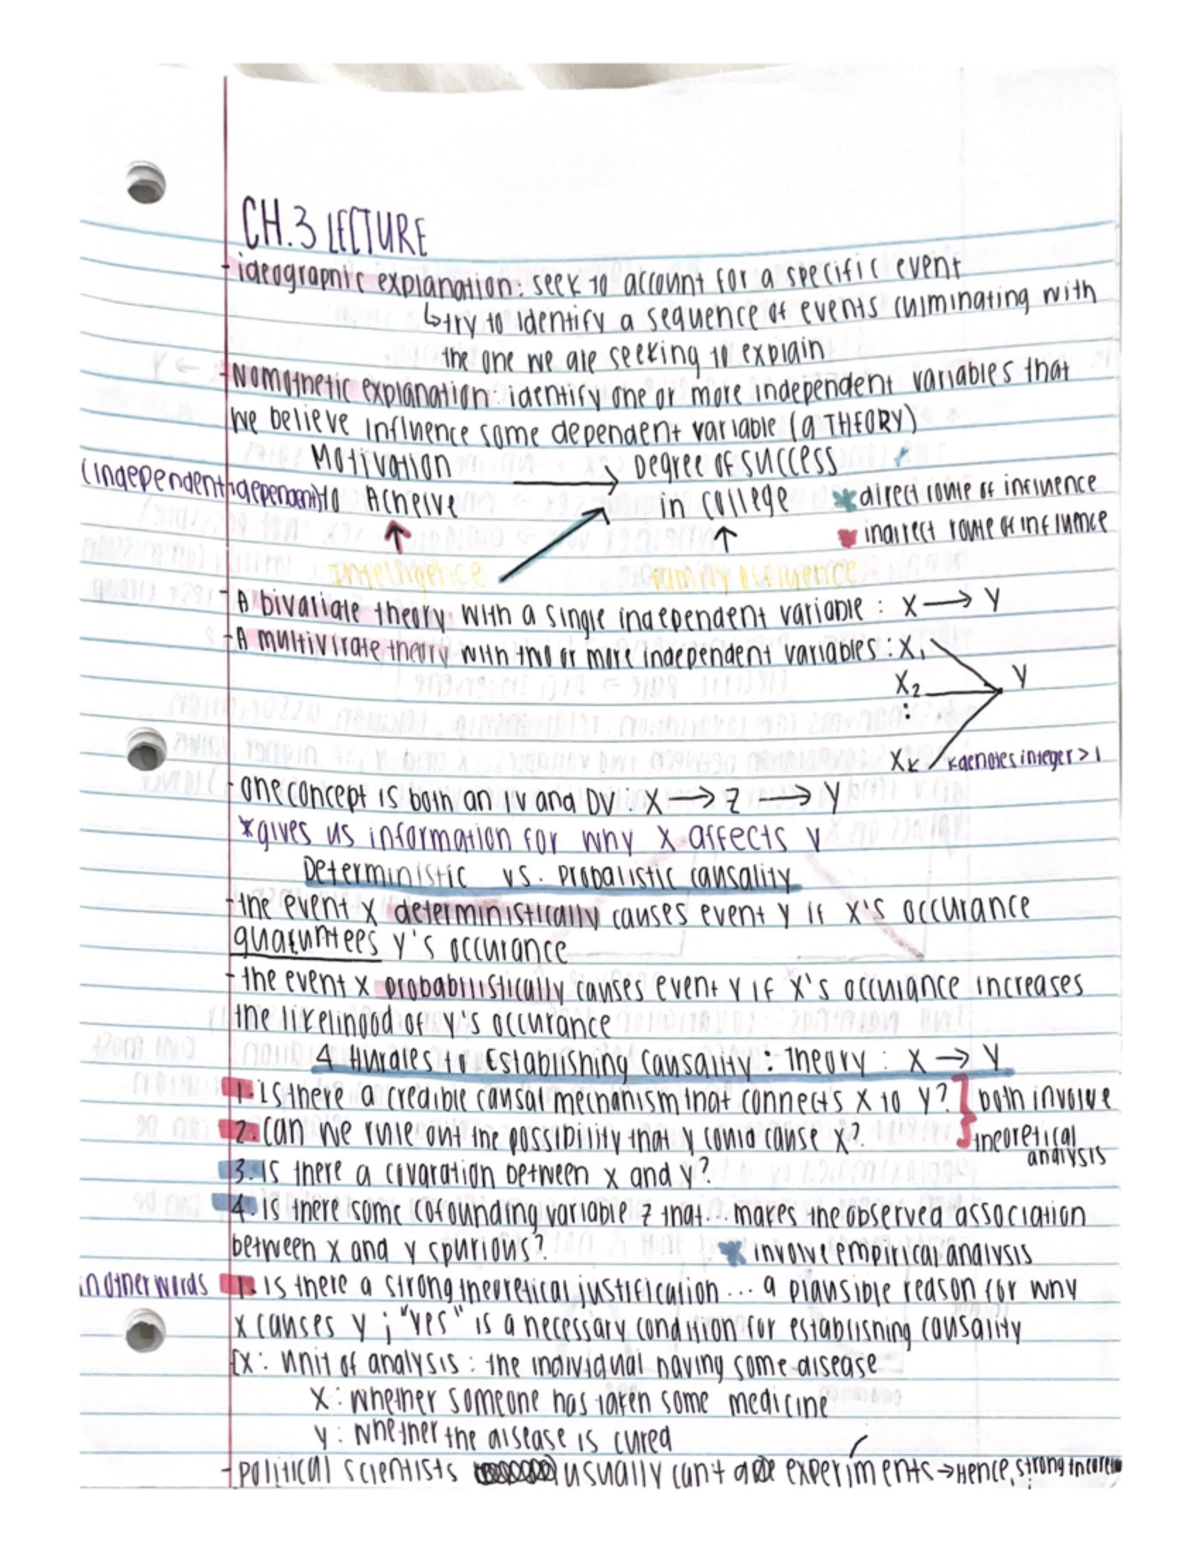 CH.3 LECTURE
- ideographic explanation: seek to account for a specific event
↳ try to identify a sequence of events culminating with
the one we are seeking to explain
- Nomothetic explanation: identify one or more independent variables that
we believe influence some dependent variable (a THEORY)
Motivation → Degree of success
(independent to Acheive in college * direct route of influence
↑ ↑ * indirect route of influence
Intelligence family
- A bivariate theory with a single independent variable : X → Y
- A multivirate theory with two or more independent variables : X₁
X₂ Y
:
Xₖ k denotes integer > 1
- one concept is both an IV and DV : X → Z → Y
* gives us information for why X affects Y
Deterministic vs. Probalistic causality
- the event X deterministically causes event Y if X's occurance
guaruntees Y's occurance
- the event X probabilistically causes event Y if X's occurance increases
the likelihood of Y's occurance
4 Hurdles to Establishing Causality : Theory : X → Y
1. Is there a credible causal mechanism that connects X to Y? } both involve
2. Can we rule out the possibility that Y could cause X? theoretical
analysis
3. Is there a covaration between X and Y?
4. Is there some cofounding variable Z that... makes the observed association
between X and Y spurious? * involve empirical analysis
in other words 1. Is there a strong theoretical justification ... a plausible reason for why
X causes Y ; "yes" is a necessary condition for establishing causality
Ex: Unit of analysis : the individual having some disease
X : Whether someone has taken some medicine
Y : Whether the disease is cured
- political scientists usually can't do experiments → Hence, strong